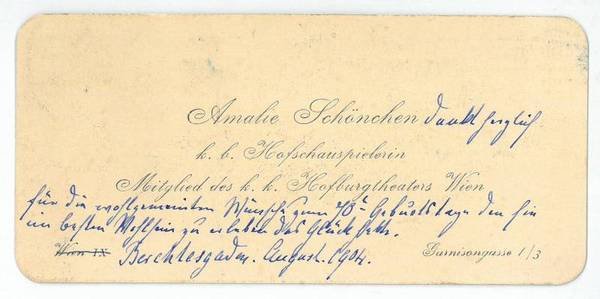 Amalie Schönchen dankt herzlich
k. b. Hofschauspielerin
Mitglied des k. k. Hofburgtheaters Wien
für die wohlgemeinten Wünsche zum 70t Geburtstage den sie
im besten Wohlsein zu erleben das Glück hatte.
Wien IX Berchtesgaden. August. 1904. Garnisongasse 1/3